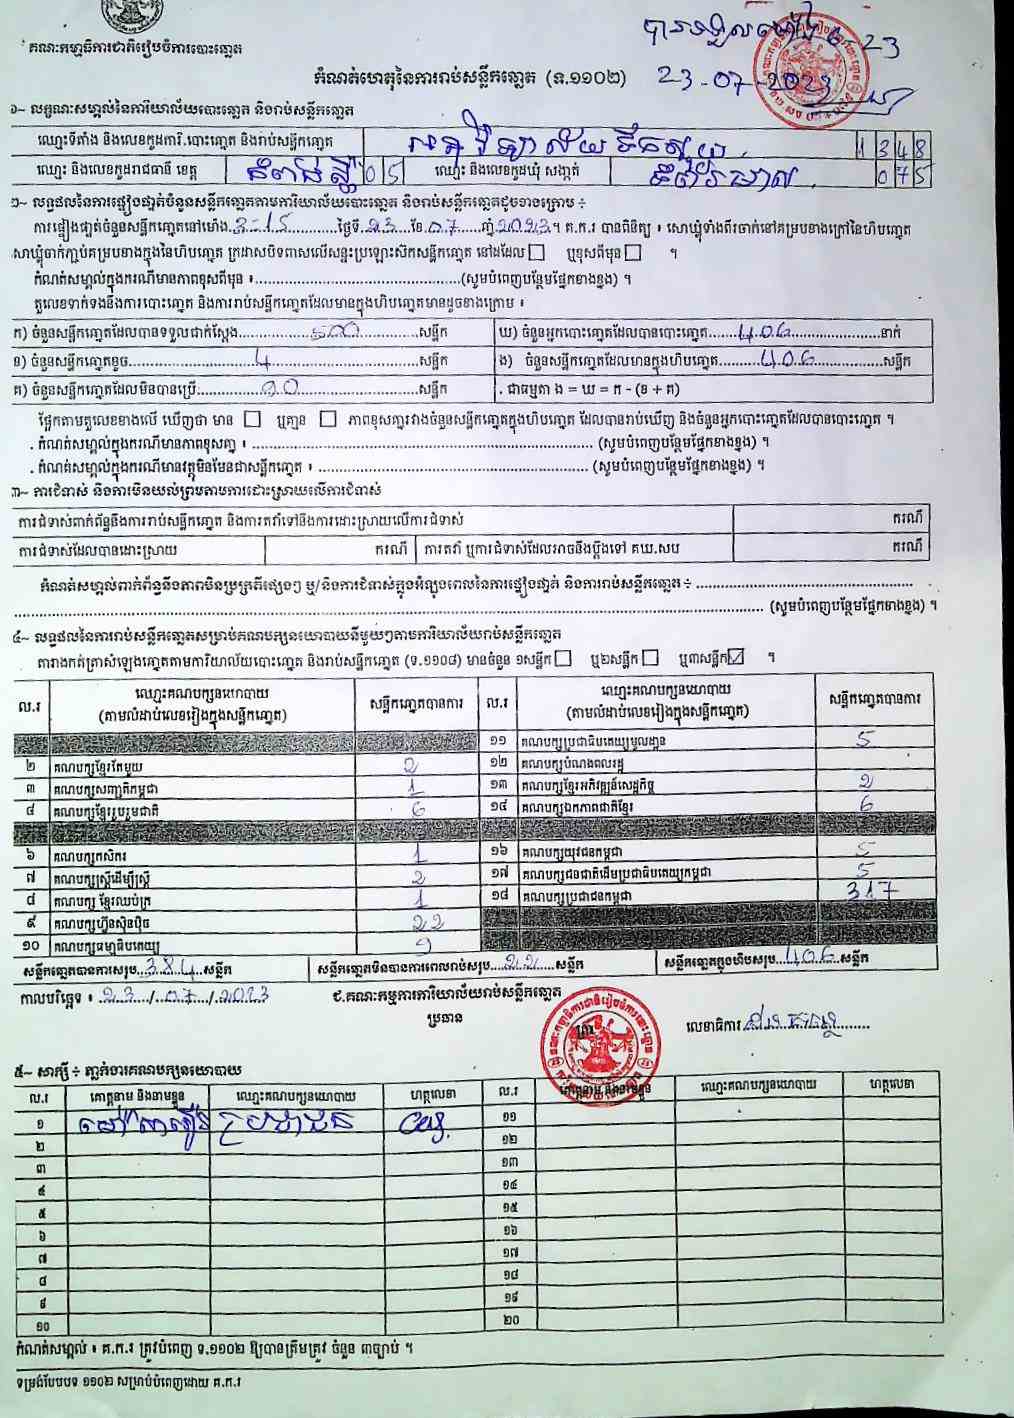 គណៈកម្មាធិការជាតិរៀបចំការបោះឆ្នោត
បានទទួលម៉ោង 6-23
កំណត់ហេតុនៃការរាប់សន្លឹកឆ្នោត (ទ.១១០២) 23-07-2023
១~ លក្ខណៈសម្គាល់នៃការិយាល័យបោះឆ្នោត និងរាប់សន្លឹកឆ្នោត
ឈ្មោះទីតាំង និងលេខកូដការិ.បោះឆ្នោត និងរាប់សន្លឹកឆ្នោត 1348
ឈ្មោះ និងលេខកូដរាជធានី ខេត្ត កំពង់ស្ពឺ 05 ឈ្មោះ និងលេខកូដឃុំ សង្កាត់ 075
២~ លទ្ធផលនៃការផ្ទៀងផ្ទាត់ចំនួនសន្លឹកឆ្នោតតាមការិយាល័យបោះឆ្នោត និងរាប់សន្លឹកឆ្នោតដូចខាងក្រោម ÷
ការផ្ទៀងផ្ទាត់ចំនួនសន្លឹកឆ្នោតនៅម៉ោង 3-15 ថ្ងៃទី 23 ខែ 07 ឆ្នាំ 2023 ។ គ.ក.រ បានពិនិត្យ ៖ សោឃ្លុំទាំងពីរចាក់នៅគម្របខាងក្រៅនៃហិបឆ្នោត
សោឃ្លុំចាក់ភ្ជាប់គម្របខាងក្នុងនៃហិបឆ្នោត ក្រដាសបិទពាសលើសន្ទះប្រឡោះសឹកសន្លឹកឆ្នោត នៅដដែល ☐ ឬខុសពីមុន ☐ ។
កំណត់សម្គាល់ក្នុងករណីមានភាពខុសពីមុន ៖ (សូមបំពេញបន្ថែមផ្នែកខាងខ្នង) ។
តួលេខទាក់ទងនឹងការបោះឆ្នោត និងការរាប់សន្លឹកឆ្នោតដែលមានក្នុងហិបឆ្នោតមានដូចខាងក្រោម ៖
ក) ចំនួនសន្លឹកឆ្នោតដែលបានទទួលជាក់ស្តែង 500 សន្លឹក ឃ) ចំនួនអ្នកបោះឆ្នោតដែលបានបោះឆ្នោត 406 នាក់
ខ) ចំនួនសន្លឹកឆ្នោតខូច 4 សន្លឹក ង) ចំនួនសន្លឹកឆ្នោតដែលមានក្នុងហិបឆ្នោត 406 សន្លឹក
គ) ចំនួនសន្លឹកឆ្នោតដែលមិនបានប្រើ 90 សន្លឹក . ជាធម្មតា ង = ឃ = ក - (ខ + គ)
ផ្អែកតាមតួលេខខាងលើ ឃើញថា មាន ☐ ឬគ្មាន ☐ ភាពខុសគ្នារវាងចំនួនសន្លឹកឆ្នោតក្នុងហិបឆ្នោត ដែលបានរាប់ឃើញ និងចំនួនអ្នកបោះឆ្នោតដែលបានបោះឆ្នោត ។
. កំណត់សម្គាល់ក្នុងករណីមានភាពខុសគ្នា ៖ (សូមបំពេញបន្ថែមផ្នែកខាងខ្នង) ។
. កំណត់សម្គាល់ក្នុងករណីមានវត្ថុមិនមែនជាសន្លឹកឆ្នោត ៖ (សូមបំពេញបន្ថែមផ្នែកខាងខ្នង) ។
៣~ ការជំទាស់ និងការមិនយល់ព្រមតាមការដោះស្រាយលើការជំទាស់
ការជំទាស់ពាក់ព័ន្ធនឹងការរាប់សន្លឹកឆ្នោត និងការតវ៉ាទៅនឹងការដោះស្រាយលើការជំទាស់ ករណី
ការជំទាស់ដែលបានដោះស្រាយ ករណី ការតវ៉ា ឬការជំទាស់ដែលអាចនឹងប្តឹងទៅ គឃ.សប ករណី
កំណត់សម្គាល់ពាក់ព័ន្ធនឹងភាពមិនប្រក្រតីផ្សេងៗ ឬ/និងការជំទាស់ក្នុងអំឡុងពេលនៃការផ្ទៀងផ្ទាត់ និងការរាប់សន្លឹកឆ្នោត ÷
(សូមបំពេញបន្ថែមផ្នែកខាងខ្នង) ។
៤~ លទ្ធផលនៃការរាប់សន្លឹកឆ្នោតសម្រាប់គណបក្សនយោបាយនីមួយៗតាមការិយាល័យរាប់សន្លឹកឆ្នោត
តារាងកត់ត្រាសំឡេងឆ្នោតតាមការិយាល័យបោះឆ្នោត និងរាប់សន្លឹកឆ្នោត (ទ.១១០៨) មានចំនួន ១សន្លឹក ☐ ឬ២សន្លឹក ☐ ឬ៣សន្លឹក ☑ ។
ល.រ ឈ្មោះគណបក្សនយោបាយ (តាមលំដាប់លេខរៀងក្នុងសន្លឹកឆ្នោត) សន្លឹកឆ្នោតបានការ ល.រ ឈ្មោះគណបក្សនយោបាយ (តាមលំដាប់លេខរៀងក្នុងសន្លឹកឆ្នោត) សន្លឹកឆ្នោតបានការ
១១ គណបក្សប្រជាធិបតេយ្យមូលដ្ឋាន 5
២ គណបក្សខ្មែរតែមួយ 2 ១២ គណបក្សបំណងពលរដ្ឋ
៣ គណបក្សសញ្ជាតិកម្ពុជា 1 ១៣ គណបក្សខ្មែរអភិវឌ្ឍន៍សេដ្ឋកិច្ច 2
៤ គណបក្សខ្មែររួបរួមជាតិ 6 ១៤ គណបក្សឯកភាពជាតិខ្មែរ 6
៦ គណបក្សកសិករ 1 ១៦ គណបក្សយុវជនកម្ពុជា 5
៧ គណបក្សស្ត្រីដើម្បីស្ត្រី 2 ១៧ គណបក្សជនជាតិដើមប្រជាធិបតេយ្យកម្ពុជា 5
៨ គណបក្ស ខ្មែរឈប់ក្រ 1 ១៨ គណបក្សប្រជាជនកម្ពុជា 317
៩ គណបក្សហ្វ៊ុនស៊ិនប៉ិច 22
១០ គណបក្សធម្មាធិបតេយ្យ 9
សន្លឹកឆ្នោតបានការសរុប 384 សន្លឹក សន្លឹកឆ្នោតមិនបានការពេលរាប់សរុប 22 សន្លឹក សន្លឹកឆ្នោតក្នុងហិបសរុប 406 សន្លឹក
កាលបរិច្ឆេទ ៖ 23/07/2023 ជ.គណៈកម្មការការិយាល័យរាប់សន្លឹកឆ្នោត
ប្រធាន លេខាធិការ
៥~ សាក្សី ÷ ភ្នាក់ងារគណបក្សនយោបាយ
ល.រ គោត្តនាម និងនាមខ្លួន ឈ្មោះគណបក្សនយោបាយ ហត្ថលេខា ល.រ គោត្តនាម និងនាមខ្លួន ឈ្មោះគណបក្សនយោបាយ ហត្ថលេខា
១ ប្រជាជន ១១
២ ១២
៣ ១៣
៤ ១៤
៥ ១៥
៦ ១៦
៧ ១៧
៨ ១៨
៩ ១៩
១០ ២០
កំណត់សម្គាល់ ៖ គ.ក.រ ត្រូវបំពេញ ទ.១១០២ ឱ្យបានត្រឹមត្រូវ ចំនួន ៣ច្បាប់ ។
ទម្រង់បែបបទ ១១០២ សម្រាប់បំពេញដោយ គ.ក.រ